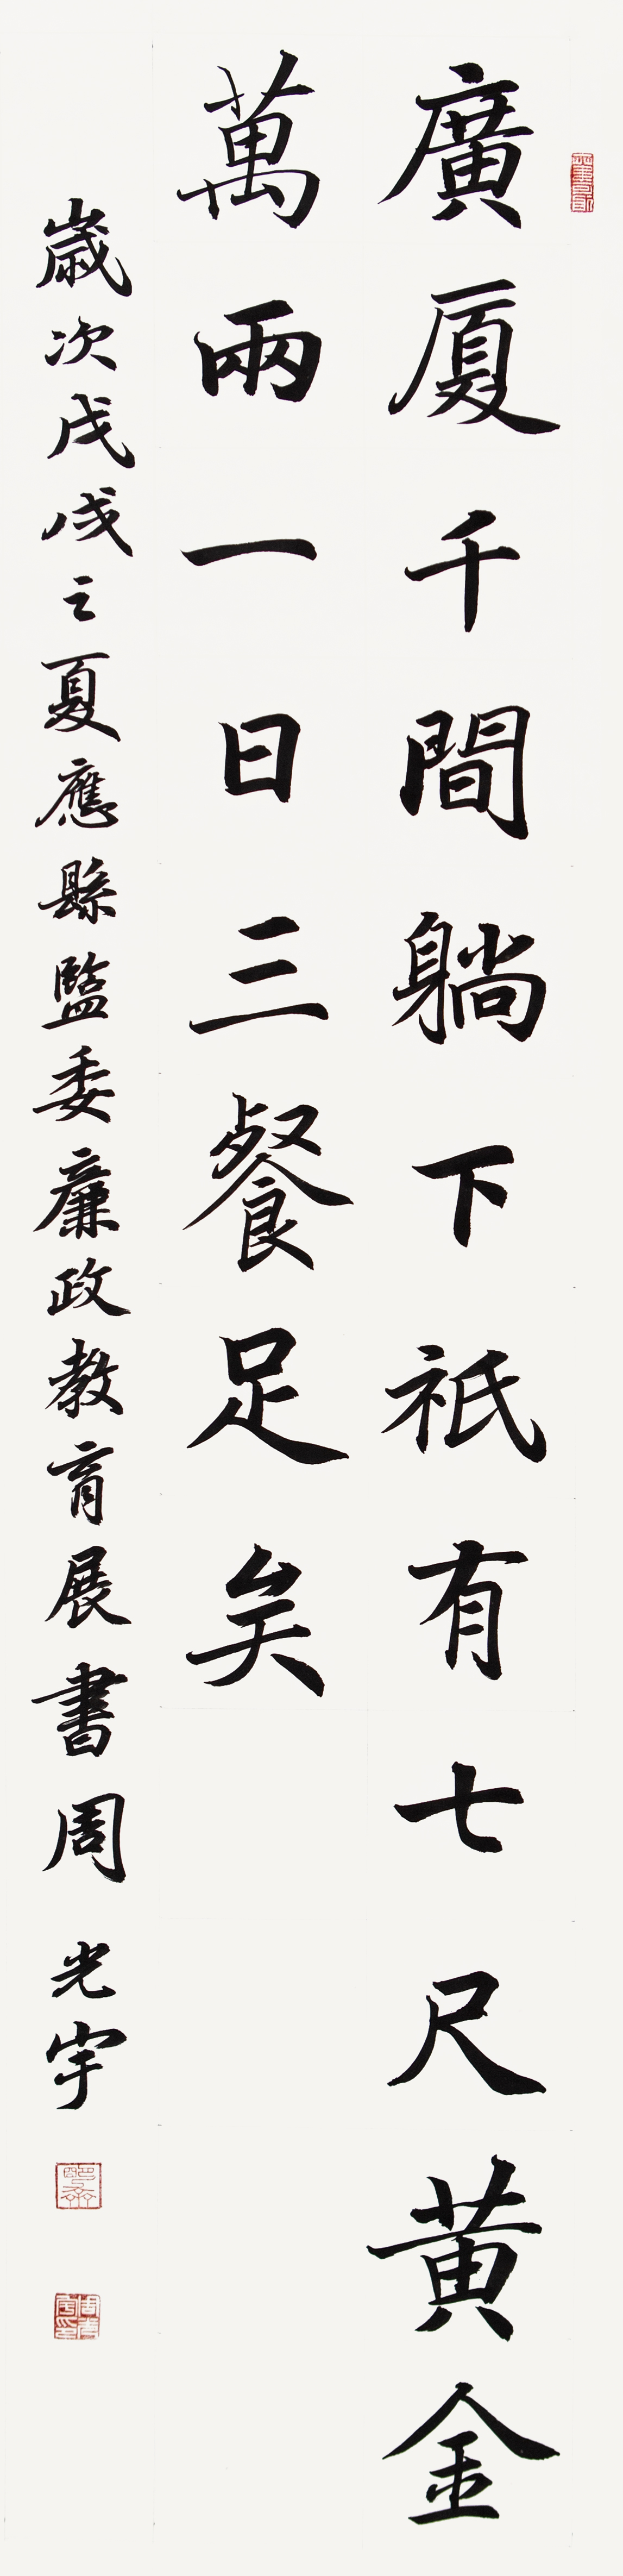 廣厦千間躺下祇有七尺黄金
萬兩一日三餐足矣
歲次戊戌之夏應縣監委廉政教育展書周光宇